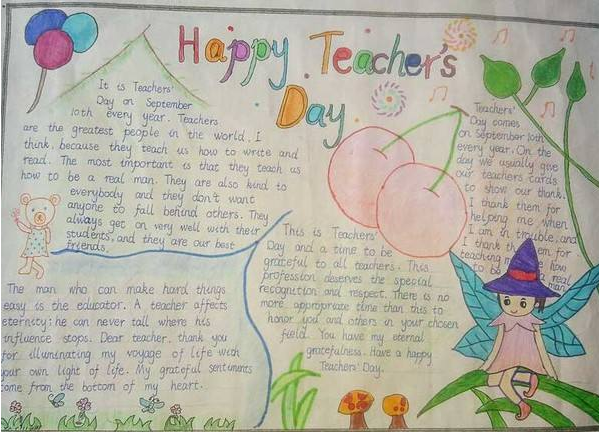 Happy Teacher's
Day
It is Teachers'
Day on September
10th every year. Teachers
are the greatest people in the world. I
think, because they teach us how to write and
read. The most important is that they teach us
how to be a real man. They are also kind to
everybody and they don't want
anyone to fall behind others. They
always get on very well with their
students, and they are our best
friends.
The man who can make hard things
easy is the educator. A teacher affects
eternity: he can never tall where his
influence stops. Dear teacher, thank you
for illuminating my voyage of life with
your own light of life. My grateful sentiments
come from the bottom of my heart.
This is Teachers'
Day and a time to be
grateful to all teachers. This
profession deserves the special
recognition and respect. There is no
more appropriate time than this to
honor you and others in your chosen
field. You have my eternal
gratefulness. Have a happy
Teachers' Day.
Teachers'
Day comes
on September 10th
every year. On the
day we usually give
our teachers cards
to show our thank.
I thank them for
helping me when
I am in trouble, and
I thank them for
teaching me how
to be a real
man.